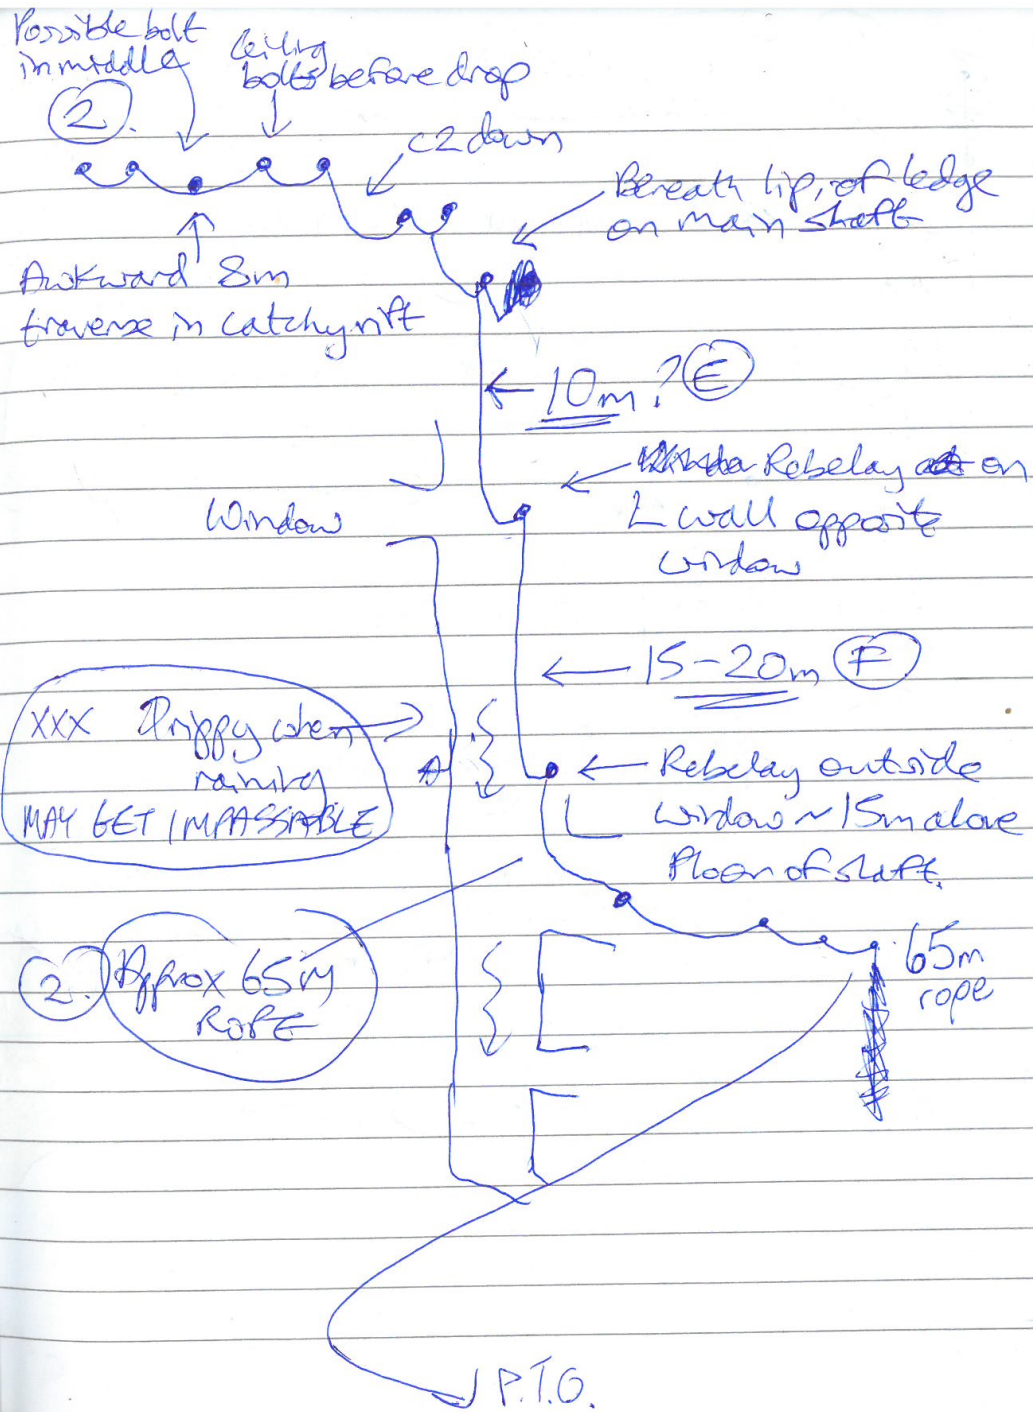 Possible bolt
in middle
Ceiling
bolts before drop
2.
c2 down
Beneath lip, of ledge
on main shaft
Awkward 8m
traverse in catchy rift
10m? E
Rebelay on
L wall opposite
window
Window
15-20m F
XXX Drippy when
raining
MAY GET IMPASSIABLE
Rebelay outside
window ~15m above
floor of shaft.
2. Approx 65m
ROPE
65m
rope
P.T.O.